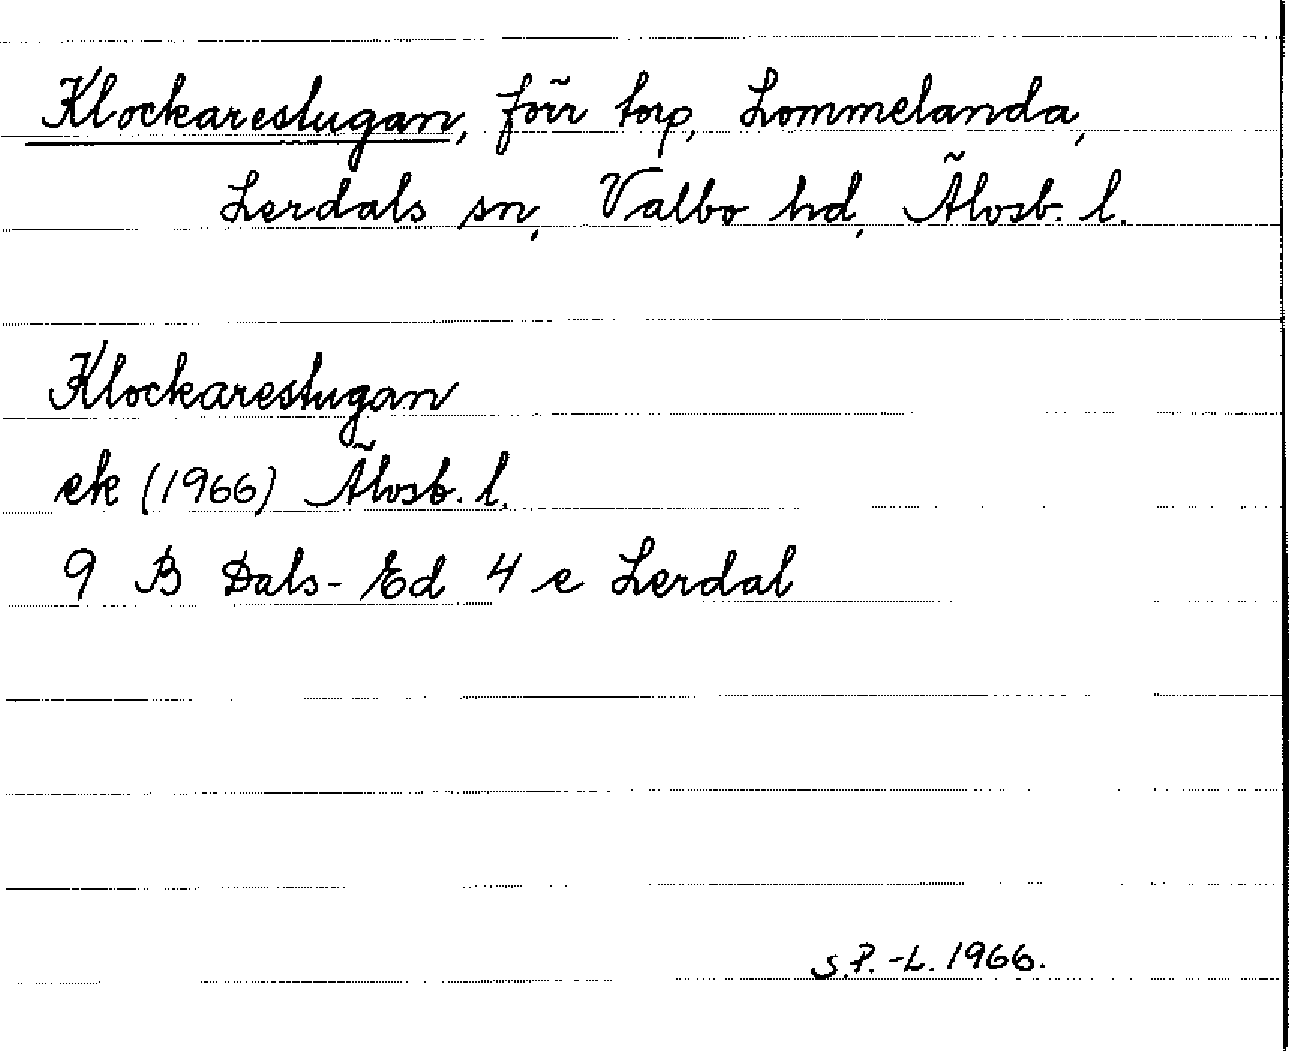 Klockarestugan, förr torp, Lommelanda,
Lerdals sn, Valbo hd, Älvsb. l.
Klockarestugan
ek (1966) Älvsb. l.
9 B Dals-Ed 4 e Lerdal
S.P.-L. 1966.